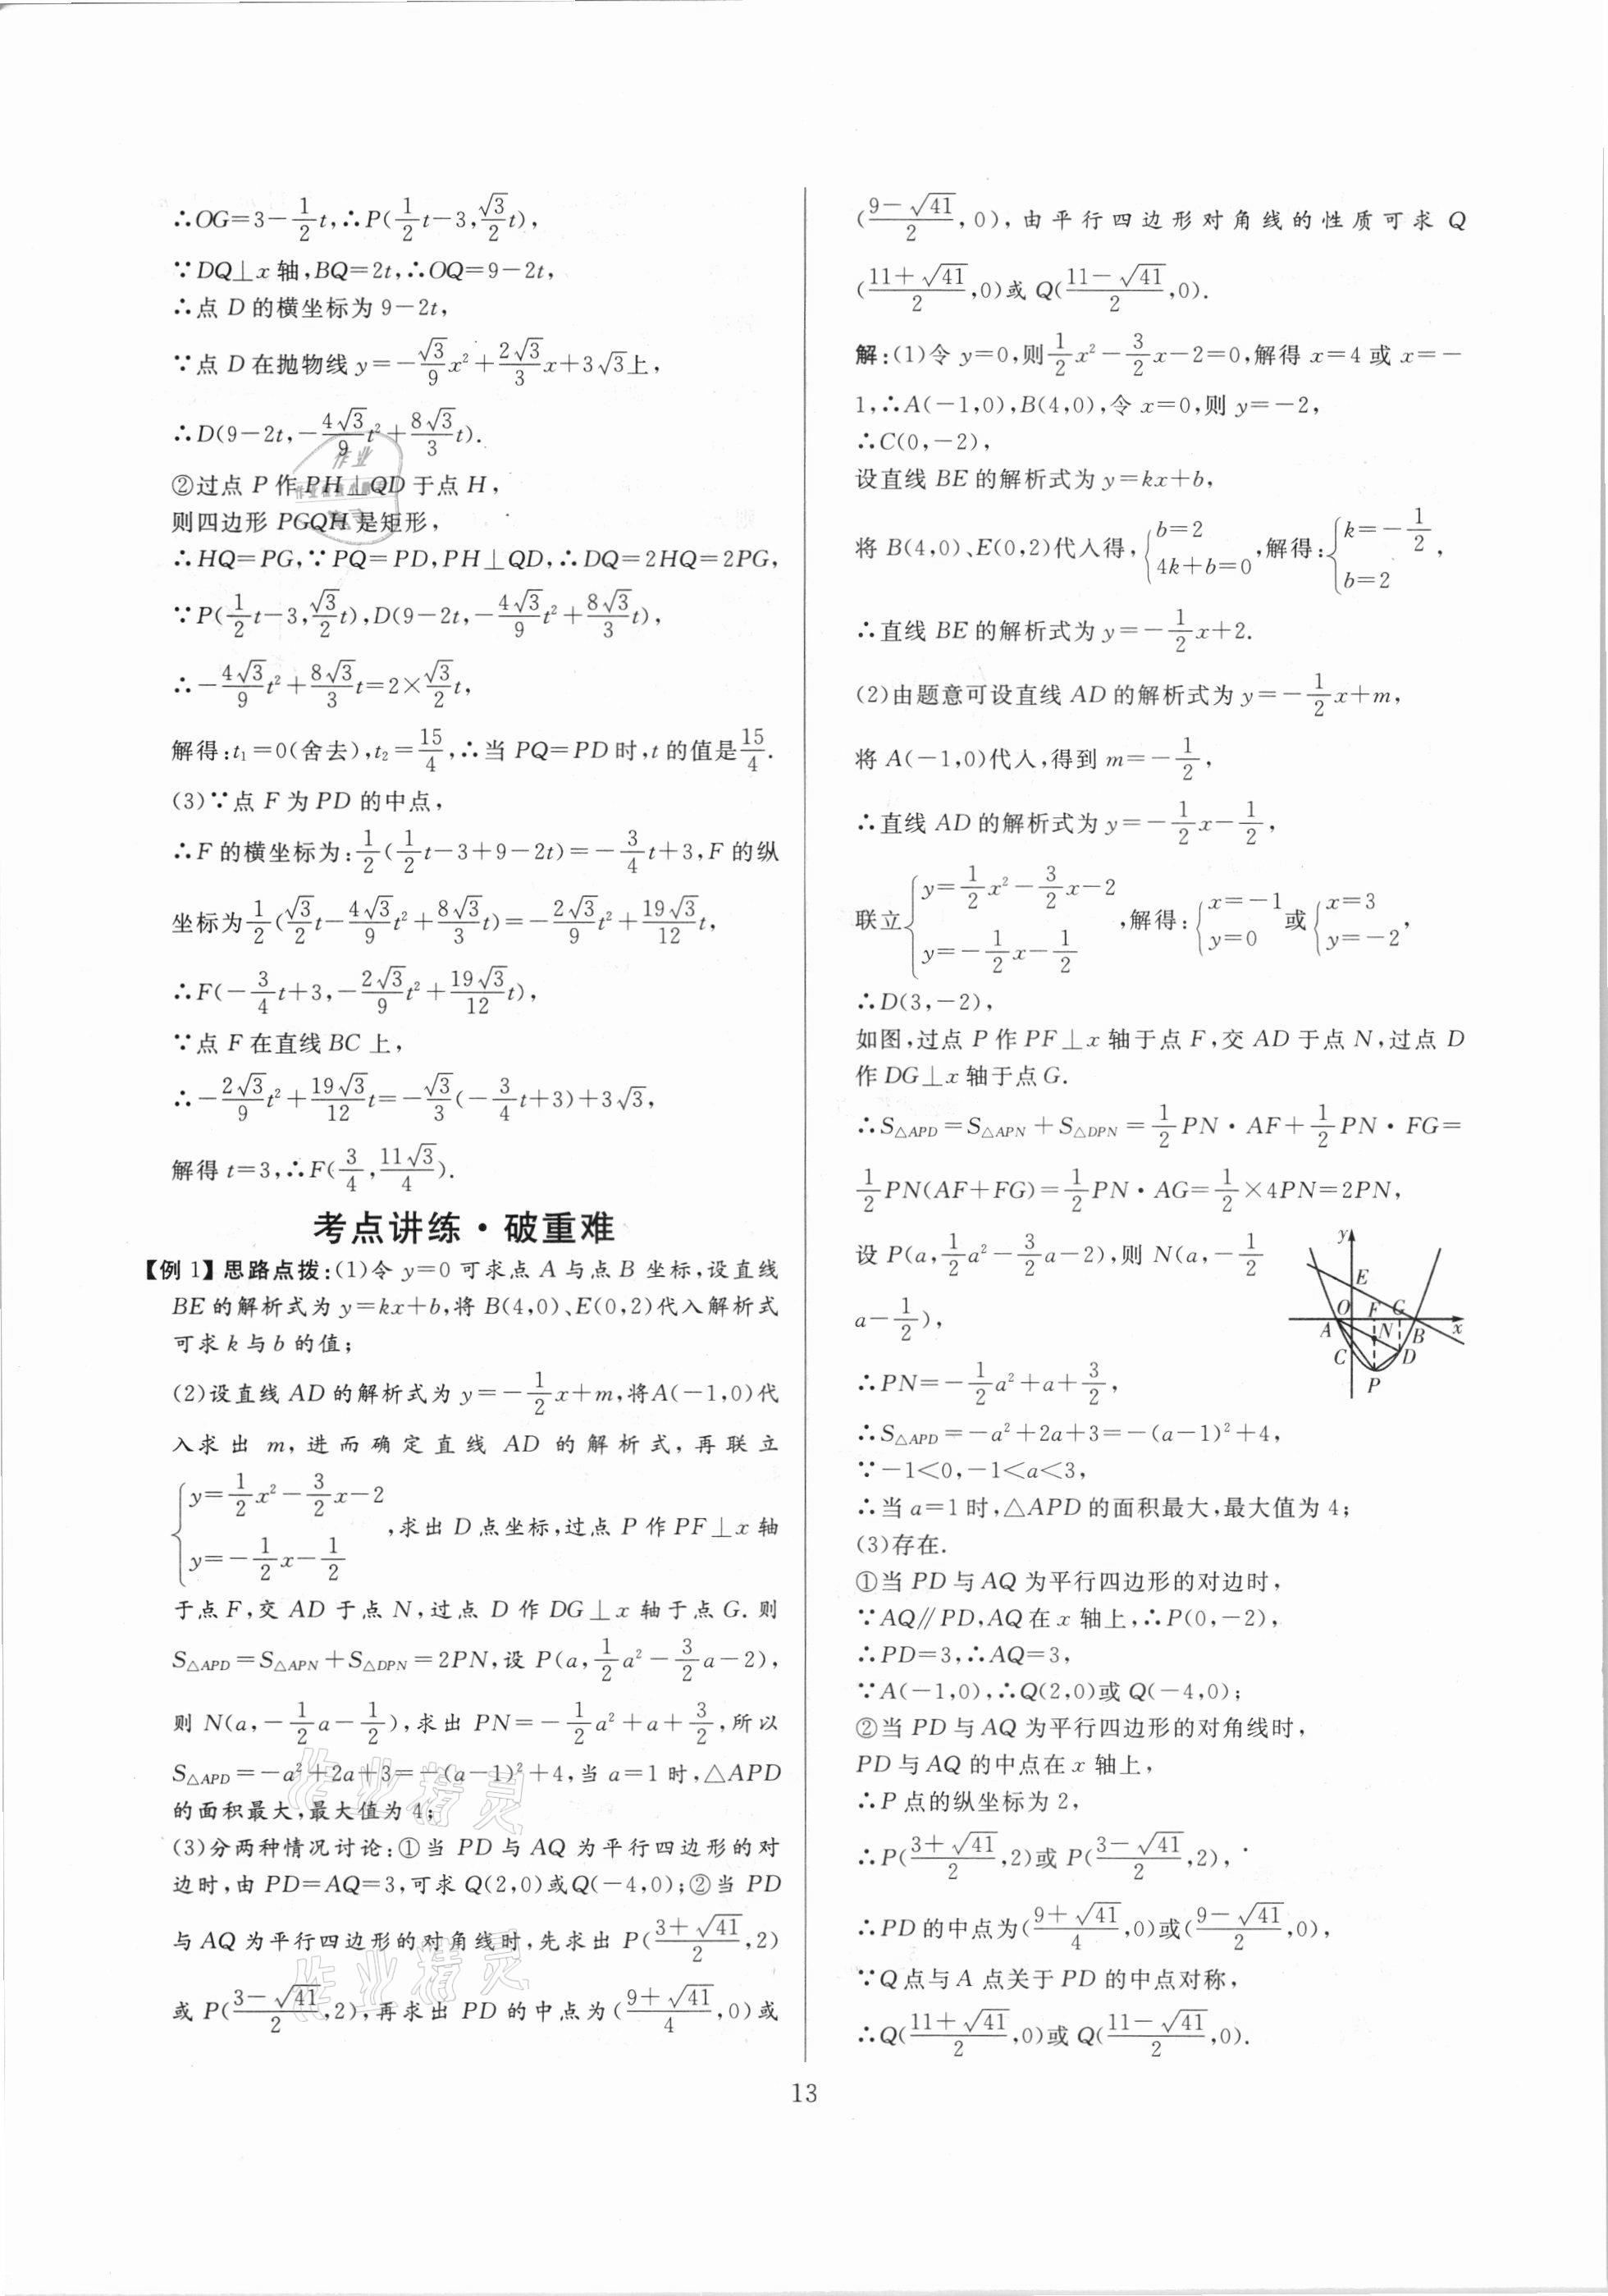 ∴OG=3-1/2t,∴P(1/2t-3,√3/2t),
∵DQ⊥x轴,BQ=2t,∴OQ=9-2t,
∴点D的横坐标为9-2t,
∵点D在抛物线y=-√3/9x²+2√3/3x+3√3上,
∴D(9-2t,-4√3/9t²+8√3/3t).
②过点P作PH⊥QD于点H,
则四边形PGQH是矩形,
∴HQ=PG,∵PQ=PD,PH⊥QD,∴DQ=2HQ=2PG,
∵P(1/2t-3,√3/2t),D(9-2t,-4√3/9t²+8√3/3t),
∴-4√3/9t²+8√3/3t=2×√3/2t,
解得:t₁=0(舍去),t₂=15/4,∴当PQ=PD时,t的值是15/4.
(3)∵点F为PD的中点,
∴F的横坐标为:1/2(1/2t-3+9-2t)=-3/4t+3,F的纵
坐标为1/2(√3/2t-4√3/9t²+8√3/3t)=-2√3/9t²+19√3/12t,
∴F(-3/4t+3,-2√3/9t²+19√3/12t),
∵点F在直线BC上,
∴-2√3/9t²+19√3/12t=-√3/3(-3/4t+3)+3√3,
解得t=3,∴F(3/4,11√3/4).
考点讲练·破重难
【例1】思路点拨:(1)令y=0可求点A与点B坐标,设直线
BE的解析式为y=kx+b,将B(4,0)、E(0,2)代入解析式
可求k与b的值;
(2)设直线AD的解析式为y=-1/2x+m,将A(-1,0)代
入求出m,进而确定直线AD的解析式,再联立
{y=1/2x²-3/2x-2
y=-1/2x-1/2
,求出D点坐标,过点P作PF⊥x轴
于点F,交AD于点N,过点D作DG⊥x轴于点G.则
S△APD=S△APN+S△DPN=2PN,设P(a,1/2a²-3/2a-2),
则N(a,-1/2a-1/2),求出PN=-1/2a²+a+3/2,所以
S△APD=-a²+2a+3=-(a-1)²+4,当a=1时,△APD
的面积最大,最大值为4;
(3)分两种情况讨论:①当PD与AQ为平行四边形的对
边时,由PD=AQ=3,可求Q(2,0)或Q(-4,0);②当PD
与AQ为平行四边形的对角线时,先求出P((3+√41)/2,2)
或P((3-√41)/2,2),再求出PD的中点为((9+√41)/4,0)或
((9-√41)/2,0),由平行四边形对角线的性质可求Q
((11+√41)/2,0)或Q((11-√41)/2,0).
解:(1)令y=0,则1/2x²-3/2x-2=0,解得x=4或x=-
1,∴A(-1,0),B(4,0),令x=0,则y=-2,
∴C(0,-2),
设直线BE的解析式为y=kx+b,
将B(4,0)、E(0,2)代入得,{b=2 4k+b=0,解得:{k=-1/2 b=2,
∴直线BE的解析式为y=-1/2x+2.
(2)由题意可设直线AD的解析式为y=-1/2x+m,
将A(-1,0)代入,得到m=-1/2,
∴直线AD的解析式为y=-1/2x-1/2,
联立{y=1/2x²-3/2x-2 y=-1/2x-1/2,解得:{x=-1 y=0或{x=3 y=-2,
∴D(3,-2),
如图,过点P作PF⊥x轴于点F,交AD于点N,过点D
作DG⊥x轴于点G.
∴S△APD=S△APN+S△DPN=1/2PN·AF+1/2PN·FG=
1/2PN(AF+FG)=1/2PN·AG=1/2×4PN=2PN,
设P(a,1/2a²-3/2a-2),则N(a,-1/2
a-1/2),
y
E
O F G
A N B x
C D
P
∴PN=-1/2a²+a+3/2,
∴S△APD=-a²+2a+3=-(a-1)²+4,
∵-1<0,-1<a<3,
∴当a=1时,△APD的面积最大,最大值为4;
(3)存在.
①当PD与AQ为平行四边形的对边时,
∵AQ∥PD,AQ在x轴上,∴P(0,-2),
∴PD=3,∴AQ=3,
∵A(-1,0),∴Q(2,0)或Q(-4,0);
②当PD与AQ为平行四边形的对角线时,
PD与AQ的中点在x轴上,
∴P点的纵坐标为2,
∴P((3+√41)/2,2)或P((3-√41)/2,2),
∴PD的中点为((9+√41)/4,0)或((9-√41)/2,0),
∵Q点与A点关于PD的中点对称,
∴Q((11+√41)/2,0)或Q((11-√41)/2,0).
13
作业精灵
作业精灵